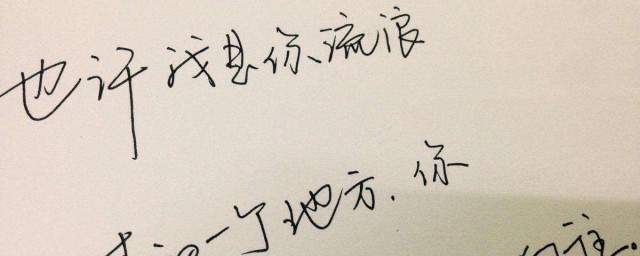 也许我是你流浪
一个地方,你
往.